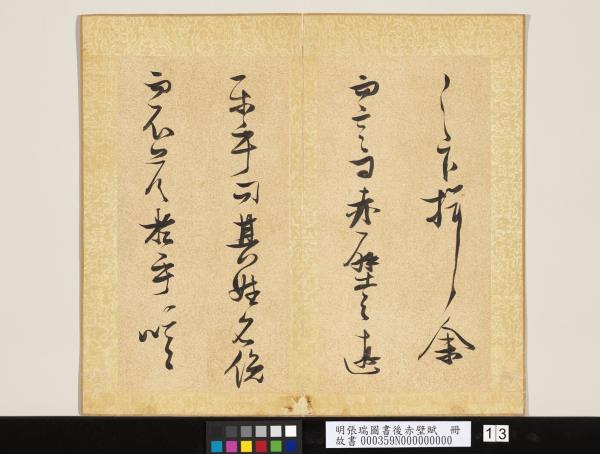 之下揖余
而言曰赤壁之遊
樂乎問其姓名俛
而不答於乎噫
明張瑞圖書後赤壁賦 冊
故書000359N000000000
13